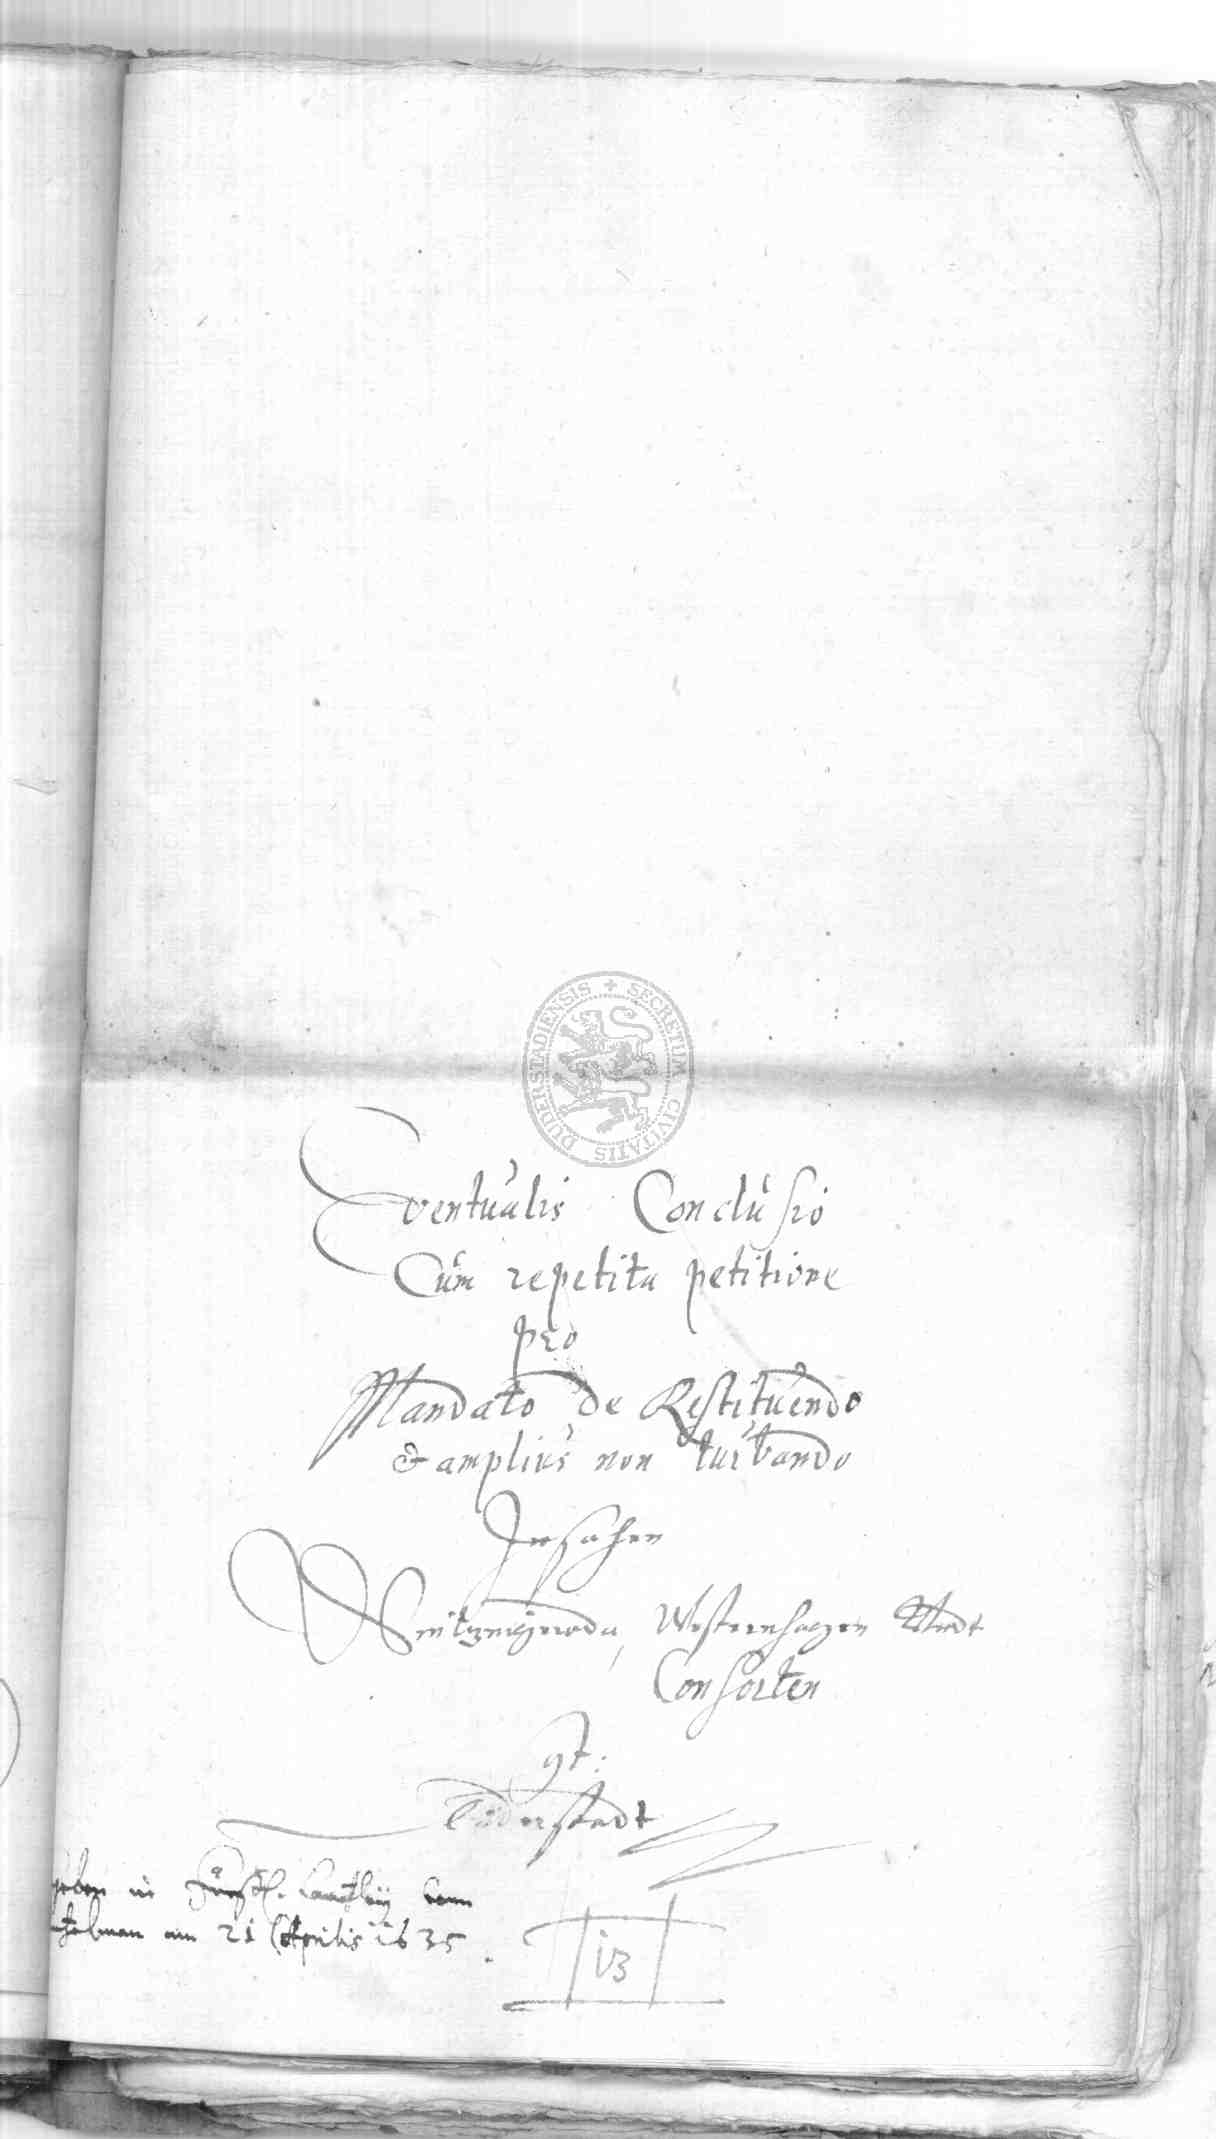 SECRETUM CIVITATIS DUDERSTADIENSIS
Eventualis Conclusio
Cum repetita petitione
pro
Mandato de Restituendo
& amplius non turbando
In sachen
Wintzingeroda, Westernhagen Undt
Consorten
gt:
Duderstadt
geben in Fürstl. Cantzley
am 21 Aprilis 1635
13